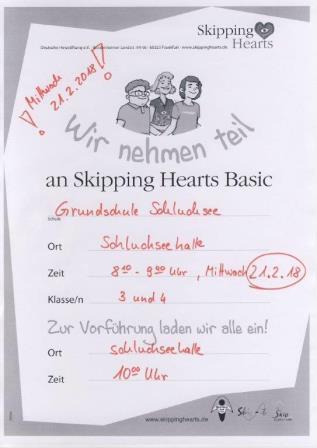 Skipping
Hearts
Deutsche Herzstiftung e.V. · Bockenheimer Landstr. 94-96 · 60323 Frankfurt · www.skippinghearts.de
! Mittwoch
21.2.2018 !
Wir nehmen teil
an Skipping Hearts Basic
Grundschule Schluchsee
Schule
Ort Schluchseehalle
Zeit 8¹⁰ - 9⁰⁰ Uhr, Mittwoch 21.2.18
Klasse/n 3 und 4
Zur Vorführung laden wir alle ein!
Ort Schluchseehalle
Zeit 10⁰⁰ Uhr
www.skippinghearts.de